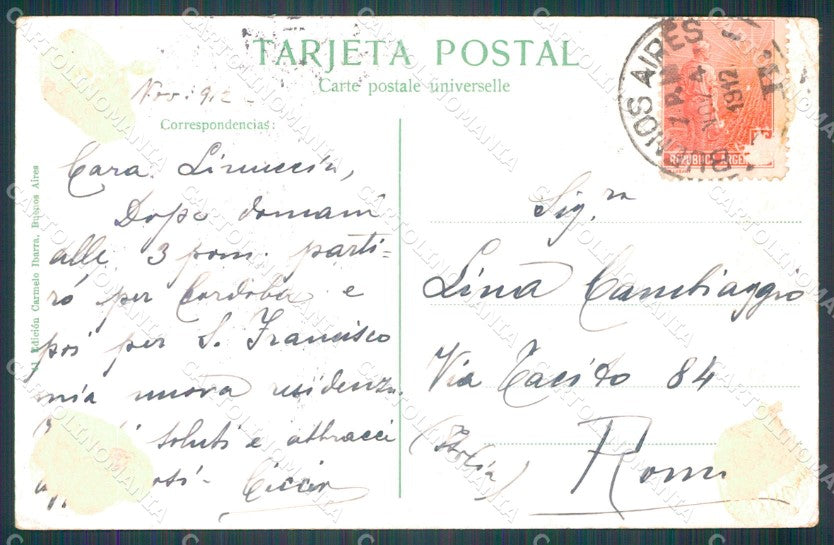 TARJETA POSTAL
Carte postale universelle
Nov. 912
Correspondencias:
Cara Linuccia,
Dopo domani
alle 3 pom. parti-
rò per Cordoba e
poi per S. Francisco
mia nuova residenza.
saluti e abbracci
Sig.ra
Lina Cambiaggio
Via Tacito 84
(Italia) Roma
Edición Carmelo Ibarra, Buenos Aires
BUENOS AIRES
1 P.M
NOV 4
1912
REPUBLICA ARGE
CARTOLINOMANIA